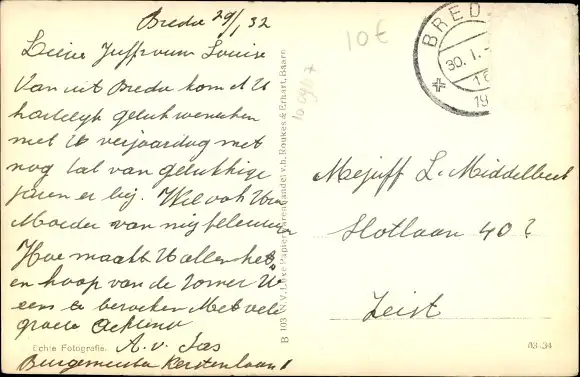 Breda 29/1 32
Lieve Juffrouw Louise
Van uit Breda kom ik U
hartelyk geluk wenschen
met Uw verjaardag met
nog tal van gelukkige
jaren er bij. Wil ook Uw
Moeder van mij feliciteren
Hoe maakt U allen het
en hoop van de zomer U
eens te bezoeken Met vele
groete Achtend
A. v. Jas
Burgemeester Kerstenlaan 1
Echte Fotografie.
B 103 N.V. Luxe Papierwarenhandel v.h. Roukes & Erhart, Baarn
10€
BRED
30. I.
19
Mejuff L. Middelbeek
Slotlaan 40?
Zeist